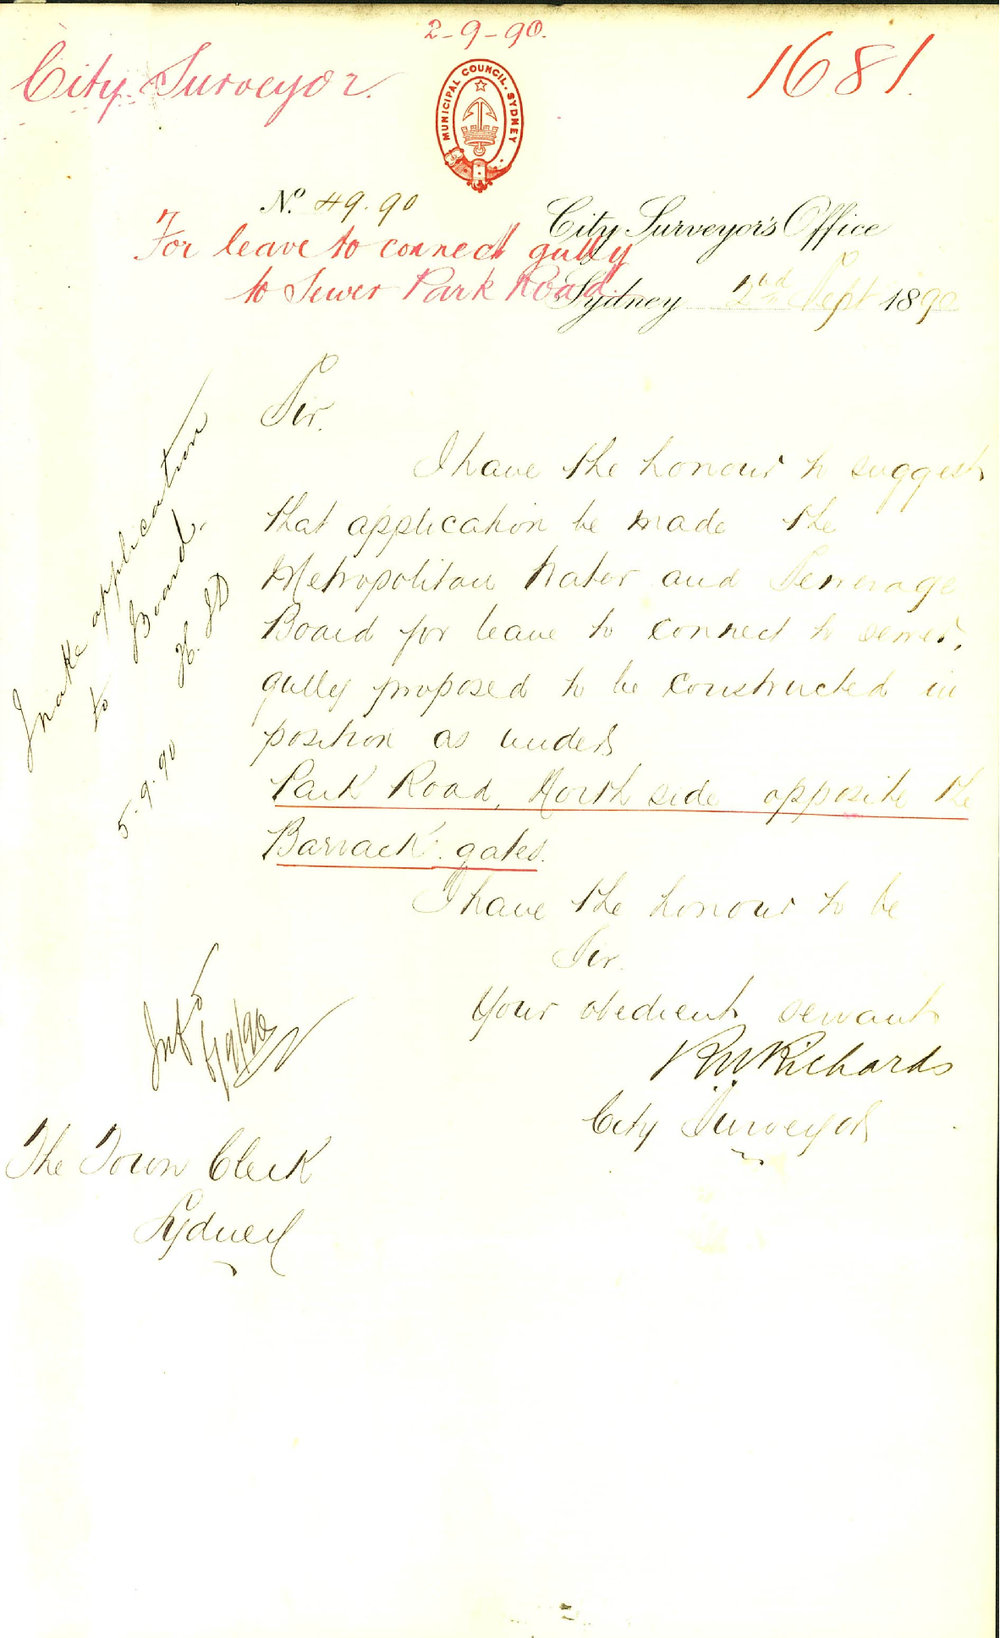 2-9-90.
City Surveyor.
1681.
MUNICIPAL COUNCIL. SYDNEY
No. 49.90
City Surveyor's Office
For leave to connect gully
to Sewer Park Road
Sydney 2nd Sept 1890
Sir.
I have the honour to suggest
that application be made the
Metropolitan Water and Sewerage
Board for leave to connect to sewer,
gully proposed to be constructed in
position as under
Park Road, North side opposite the
Barrack gates.
I have the honour to be
Sir.
Your obedient servant
RWRichards
City Surveyor
The Town Clerk
Sydney
Make application
to Board.
5.9.90
6/9/90